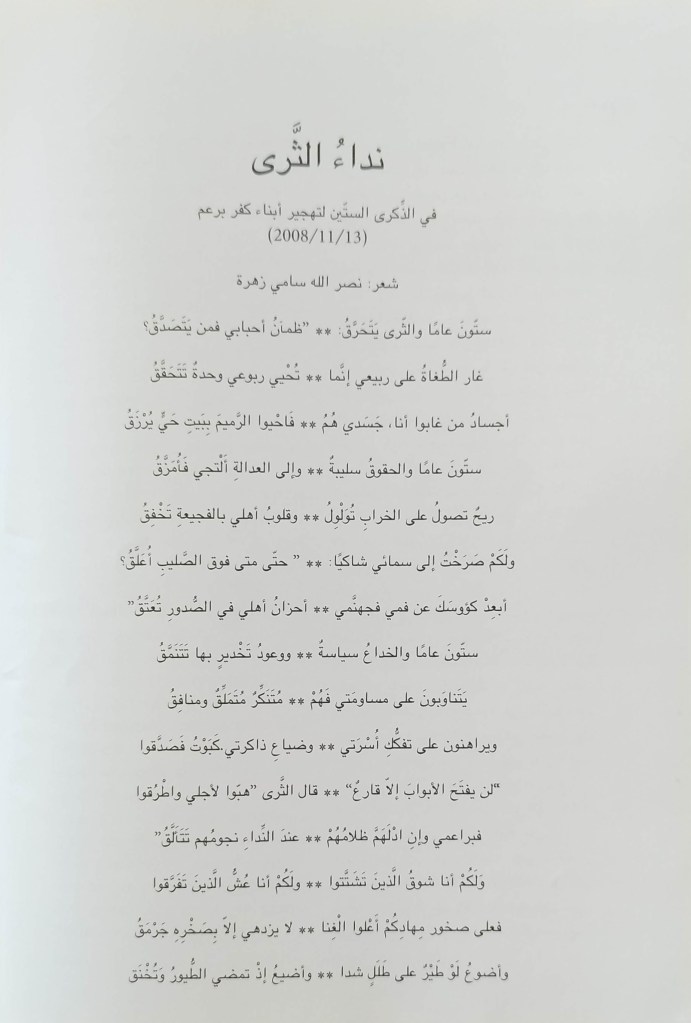 نداءُ الثَّرى
في الذِّكرى الستّين لتهجير أبناء كفر برعم
(2008/11/13)
شعر: نصر الله سامي زهرة
ستّونَ عامًا والثّرى يَتَحَرَّقُ: ** "ظمآنُ أحبابي فمن يَتَصَدَّقُ؟
غار الطُّغاةُ على ربيعي إنَّما ** تُحْيي ربوعي وحدةٌ تَتَحَقَّقُ
أجسادُ من غابوا أنا، جَسَدي هُمُ ** فَاحْيوا الرَّميمَ بِبَيتِ حَيٍّ يُرْزَقُ
ستّونَ عامًا والحقوقُ سليبةٌ ** وإلى العدالةِ أَلْتجي فَأُمَزَّقُ
ريحٌ تصولُ على الخرابِ تُوَلْوِلُ ** وقلوبُ أهلي بالفجيعةِ تَخْفِقُ
ولَكَمْ صَرَخْتُ إلى سمائي شاكيًا: ** " حتّى متى فوق الصَّليبِ أُعَلَّقُ؟
أبعِدْ كؤوسَكَ عن فمي فجهنَّمي ** أحزانُ أهلي في الصُّدورِ تُعَتَّقُ"
ستّونَ عامًا والخداعُ سياسةٌ ** ووعودُ تَخْديرٍ بها تَتَنَمَّقُ
يَتَناوَبونَ على مساومَتي فَهُمْ ** مُتَنَكِّرٌ مُتَمَلِّقٌ ومنافِقُ
ويراهنون على تفكُّكِ أُسْرَتي ** وضياعِ ذاكرتي.كَبَوْتُ فَصَدَّقوا
"لن يفتَحَ الأبوابَ إلاّ قارعٌ" ** قال الثَّرى "هبّوا لأجلي واطْرُقوا
فبراعمي وإنِ ادْلَهَمَّ ظلامُهُمْ ** عندَ النِّداءِ نجومُهم تَتَأَلَّقُ"
وَلَكُمْ أنا شوقُ الَّذينَ تَشَتَّتوا ** ولَكُمْ أنا عُشُّ الَّذينَ تَفَرَّقوا
فعلى صخور مِهادِكُمْ أَعْلوا الْغِنا ** لا يزدهي إلاّ بِصَخْرِهِ جَرْمَقُ
وأضوعُ لَوْ طَيْرٌ على طَلَلٍ شدا ** وأضيعُ إذْ تمضي الطُّيورُ وَتُخْنَق